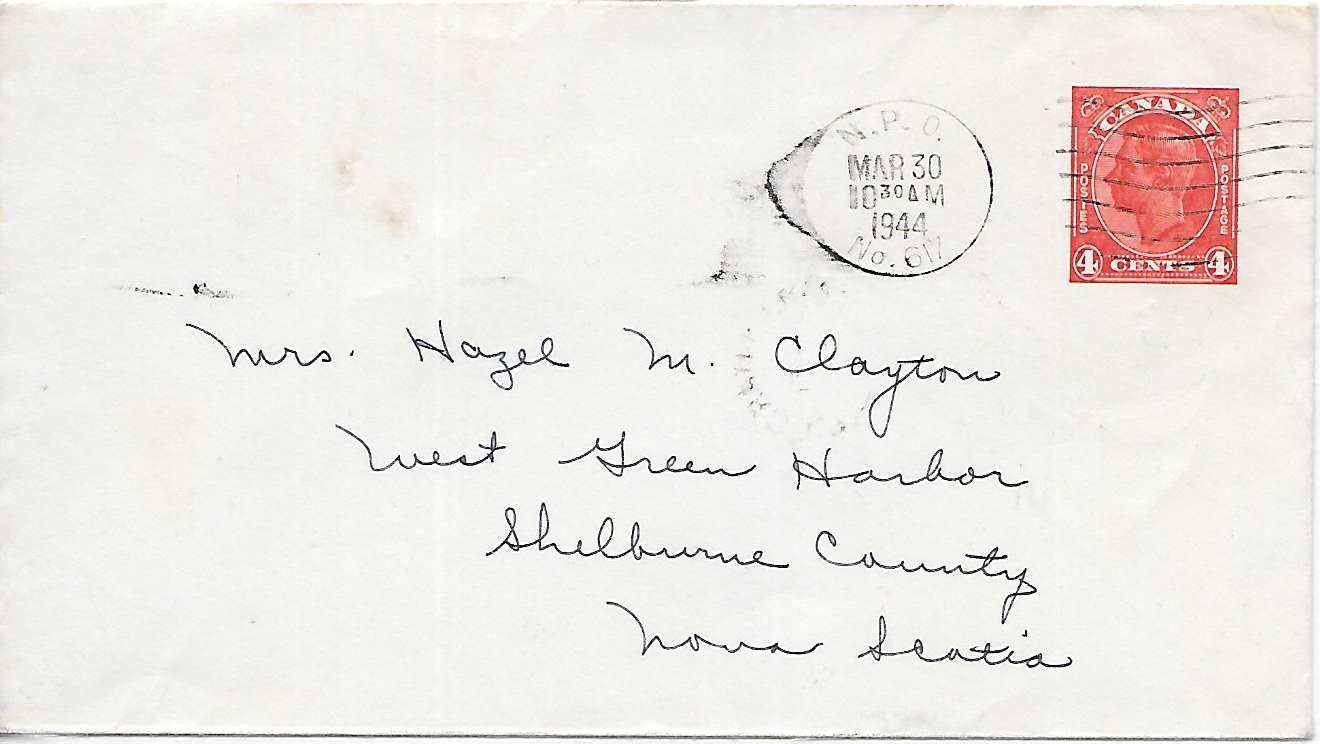 N.P.O.
MAR 30
10 30 AM
1944
No. 617
CANADA
POSTES
POSTAGE
4 CENTS 4
Mrs. Hazel M. Clayton
West Green Harbor
Shelburne County
Nova Scotia